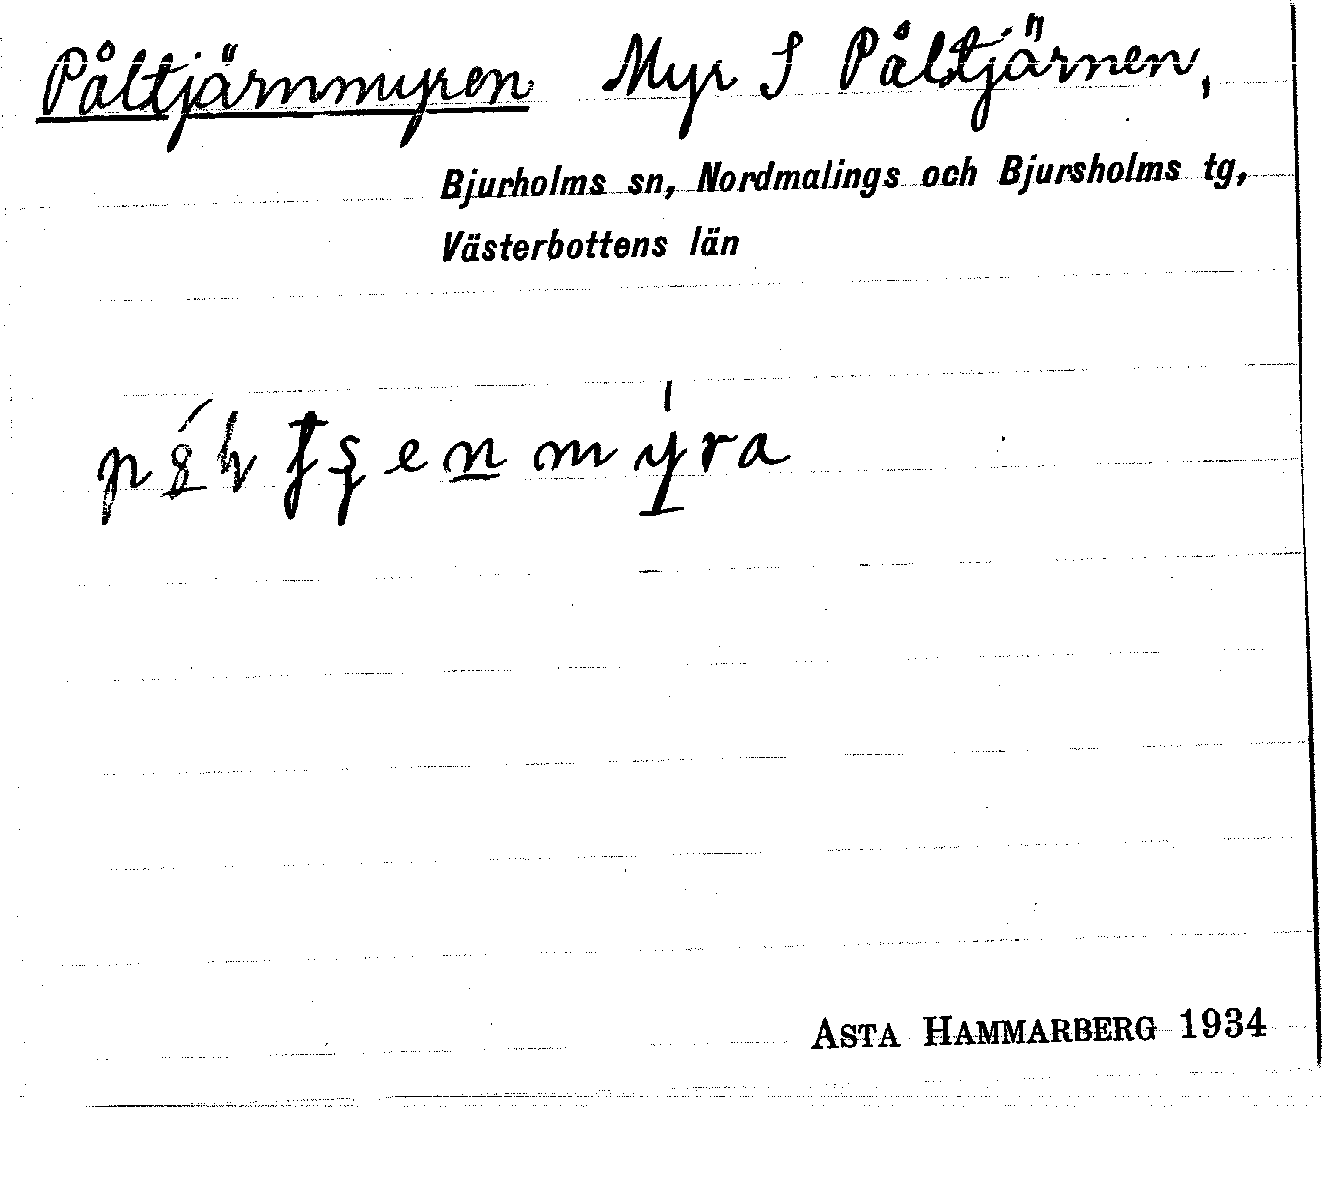 Påltjärnmyren Myr S Påltjärnen,
Bjurholms sn, Nordmalings och Bjursholms tg,
Västerbottens län
ASTA HAMMARBERG 1934